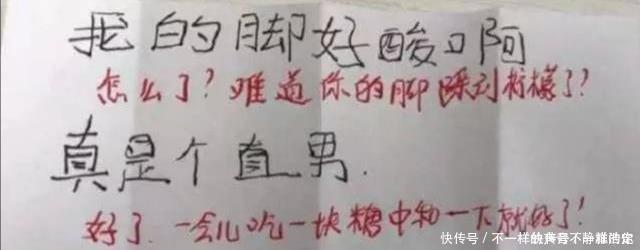 我的脚好酸口阿
怎么了?难道你的脚踩到柠檬了?
真是个直男.
好了.一会儿吃一块糖中和一下就好了!
快传号/不一样的